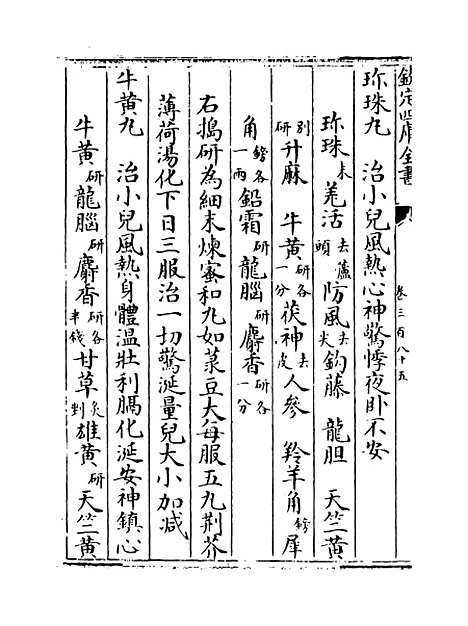 欽定四庫全書
卷三百八十五
珎珠丸 治小兒風熱心神驚悸夜卧不安
珎珠末 羗活去蘆頭 防風去尖 鈎藤 龍胆 天竺黄
别研 升麻 牛黄研各一分 茯神去皮 人參 羚羊角鎊 犀
角鎊各一兩 鉛霜研 龍腦研 麝香研各一分
右搗研為細末煉蜜和丸如菉豆大每服五丸荆芥
薄荷湯化下日三服治一切驚涎量兒大小加减
牛黄丸 治小兒風熱身體温壯利膈化涎安神鎮心
牛黄研 龍腦研 麝香研各半錢 甘草炙剉 雄黄研 天竺黄